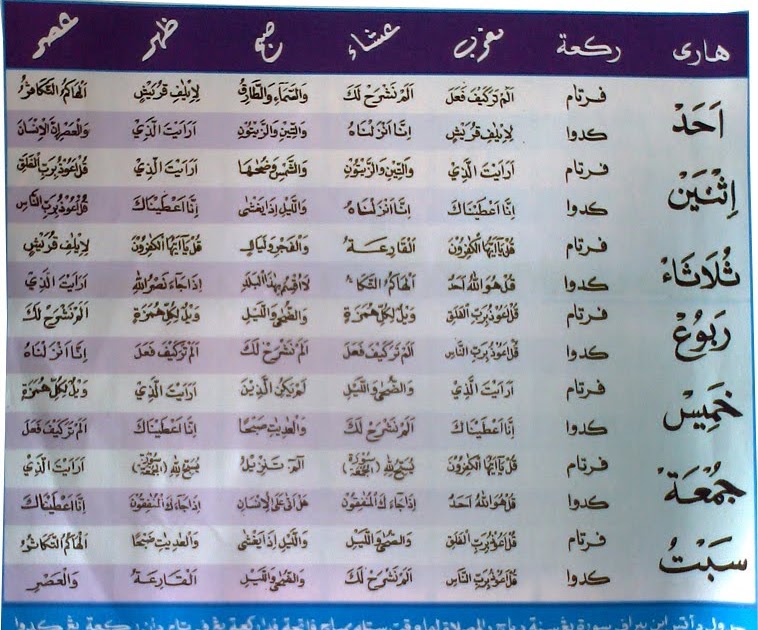 هارى ركعة مغرب عشاء صبح ظهر عصر
اَحَدْ
فرتام اَلَمْ تَرَكَيْفَ فَعَلَ اَلَمْ نَشْرَحْ لَكَ وَالسَّمَاءِ وَالطَّارِقِ لِاِيلٰفِ قُرَيْشٍ اَلْهَاكُمُ التَّكَاثُرُ
كدوا لِاِيلٰفِ قُرَيْشٍ اِنَّا اَنْزَلْنَاهُ وَالتِّيْنِ وَالزَّيْتُوْنِ اَرَاَيْتَ الَّذِيْ وَالْعَصْرِ اِنَّ الْاِنْسَانَ
اِثْنَيْن
فرتام اَرَاَيْتَ الَّذِيْ وَالتِّيْنِ وَالزَّيْتُوْنِ وَالشَّمْسِ وَضُحٰهَا اَرَاَيْتَ الَّذِيْ قُلْ اَعُوْذُ بِرَبِّ الْفَلَقِ
كدوا اِنَّا اَعْطَيْنَاكَ اِنَّا اَنْزَلْنَاهُ وَاللَّيْلِ اِذَا يَغْشٰى اِنَّا اَعْطَيْنَاكَ قُلْ اَعُوْذُ بِرَبِّ النَّاسِ
ثُلَاثَاءْ
فرتام قُلْ يَا اَيُّهَا الْكٰفِرُوْنَ اَلْقَارِعَةُ وَالْفَجْرِ وَلَيَالٍ قُلْ يَا اَيُّهَا الْكٰفِرُوْنَ لِاِيلٰفِ قُرَيْشٍ
كدوا قُلْ هُوَ اللهُ اَحَدٌ اَلْهَاكُمُ التَّكَاثُرُ لَا اُقْسِمُ بِهٰذَا الْبَلَدِ اِذَا جَاءَ نَصْرُ اللهِ اَرَاَيْتَ الَّذِيْ
رَبُوْعْ
فرتام قُلْ اَعُوْذُ بِرَبِّ الْفَلَقِ وَيْلٌ لِكُلِّ هُمَزَةٍ وَالضُّحٰى وَاللَّيْلِ وَيْلٌ لِكُلِّ هُمَزَةٍ اَلَمْ نَشْرَحْ لَكَ
كدوا قُلْ اَعُوْذُ بِرَبِّ النَّاسِ اَلَمْ تَرَكَيْفَ فَعَلَ اَلَمْ نَشْرَحْ لَكَ اَلَمْ تَرَكَيْفَ فَعَلَ اِنَّا اَنْزَلْنَاهُ
خَمِيْسْ
فرتام اَرَاَيْتَ الَّذِيْ وَالضُّحٰى وَاللَّيْلِ لَمْ يَكُنِ الَّذِيْنَ اَرَاَيْتَ الَّذِيْ وَيْلٌ لِكُلِّ هُمَزَةٍ
كدوا اِنَّا اَعْطَيْنَاكَ اَلَمْ نَشْرَحْ لَكَ وَالْعٰدِيٰتِ ضَبْحًا اِنَّا اَعْطَيْنَاكَ اَلَمْ تَرَكَيْفَ فَعَلَ
جُمْعَةْ
فرتام قُلْ يَا اَيُّهَا الْكٰفِرُوْنَ يُسَبِّحُ لِلّٰهِ (سورة الجمعة) الٓمٓ تَنْزِيْلُ يُسَبِّحُ لِلّٰهِ (سورة الجمعة) اَرَاَيْتَ الَّذِيْ
كدوا قُلْ هُوَ اللهُ اَحَدٌ اِذَا جَاءَكَ الْمُنٰفِقُوْنَ هَلْ اَتٰى عَلَى الْاِنْسَانِ اِذَا جَاءَكَ الْمُنٰفِقُوْنَ اِنَّا اَعْطَيْنَاكَ
سَبْتْ
فرتام قُلْ اَعُوْذُ بِرَبِّ الْفَلَقِ وَالضُّحٰى وَاللَّيْلِ وَاللَّيْلِ اِذَا يَغْشٰى وَالْعٰدِيٰتِ ضَبْحًا اَلْهَاكُمُ التَّكَاثُرُ
كدوا قُلْ اَعُوْذُ بِرَبِّ النَّاسِ اَلَمْ نَشْرَحْ لَكَ وَالضُّحٰى وَاللَّيْلِ اَلْقَارِعَةُ وَالْعَصْرِ